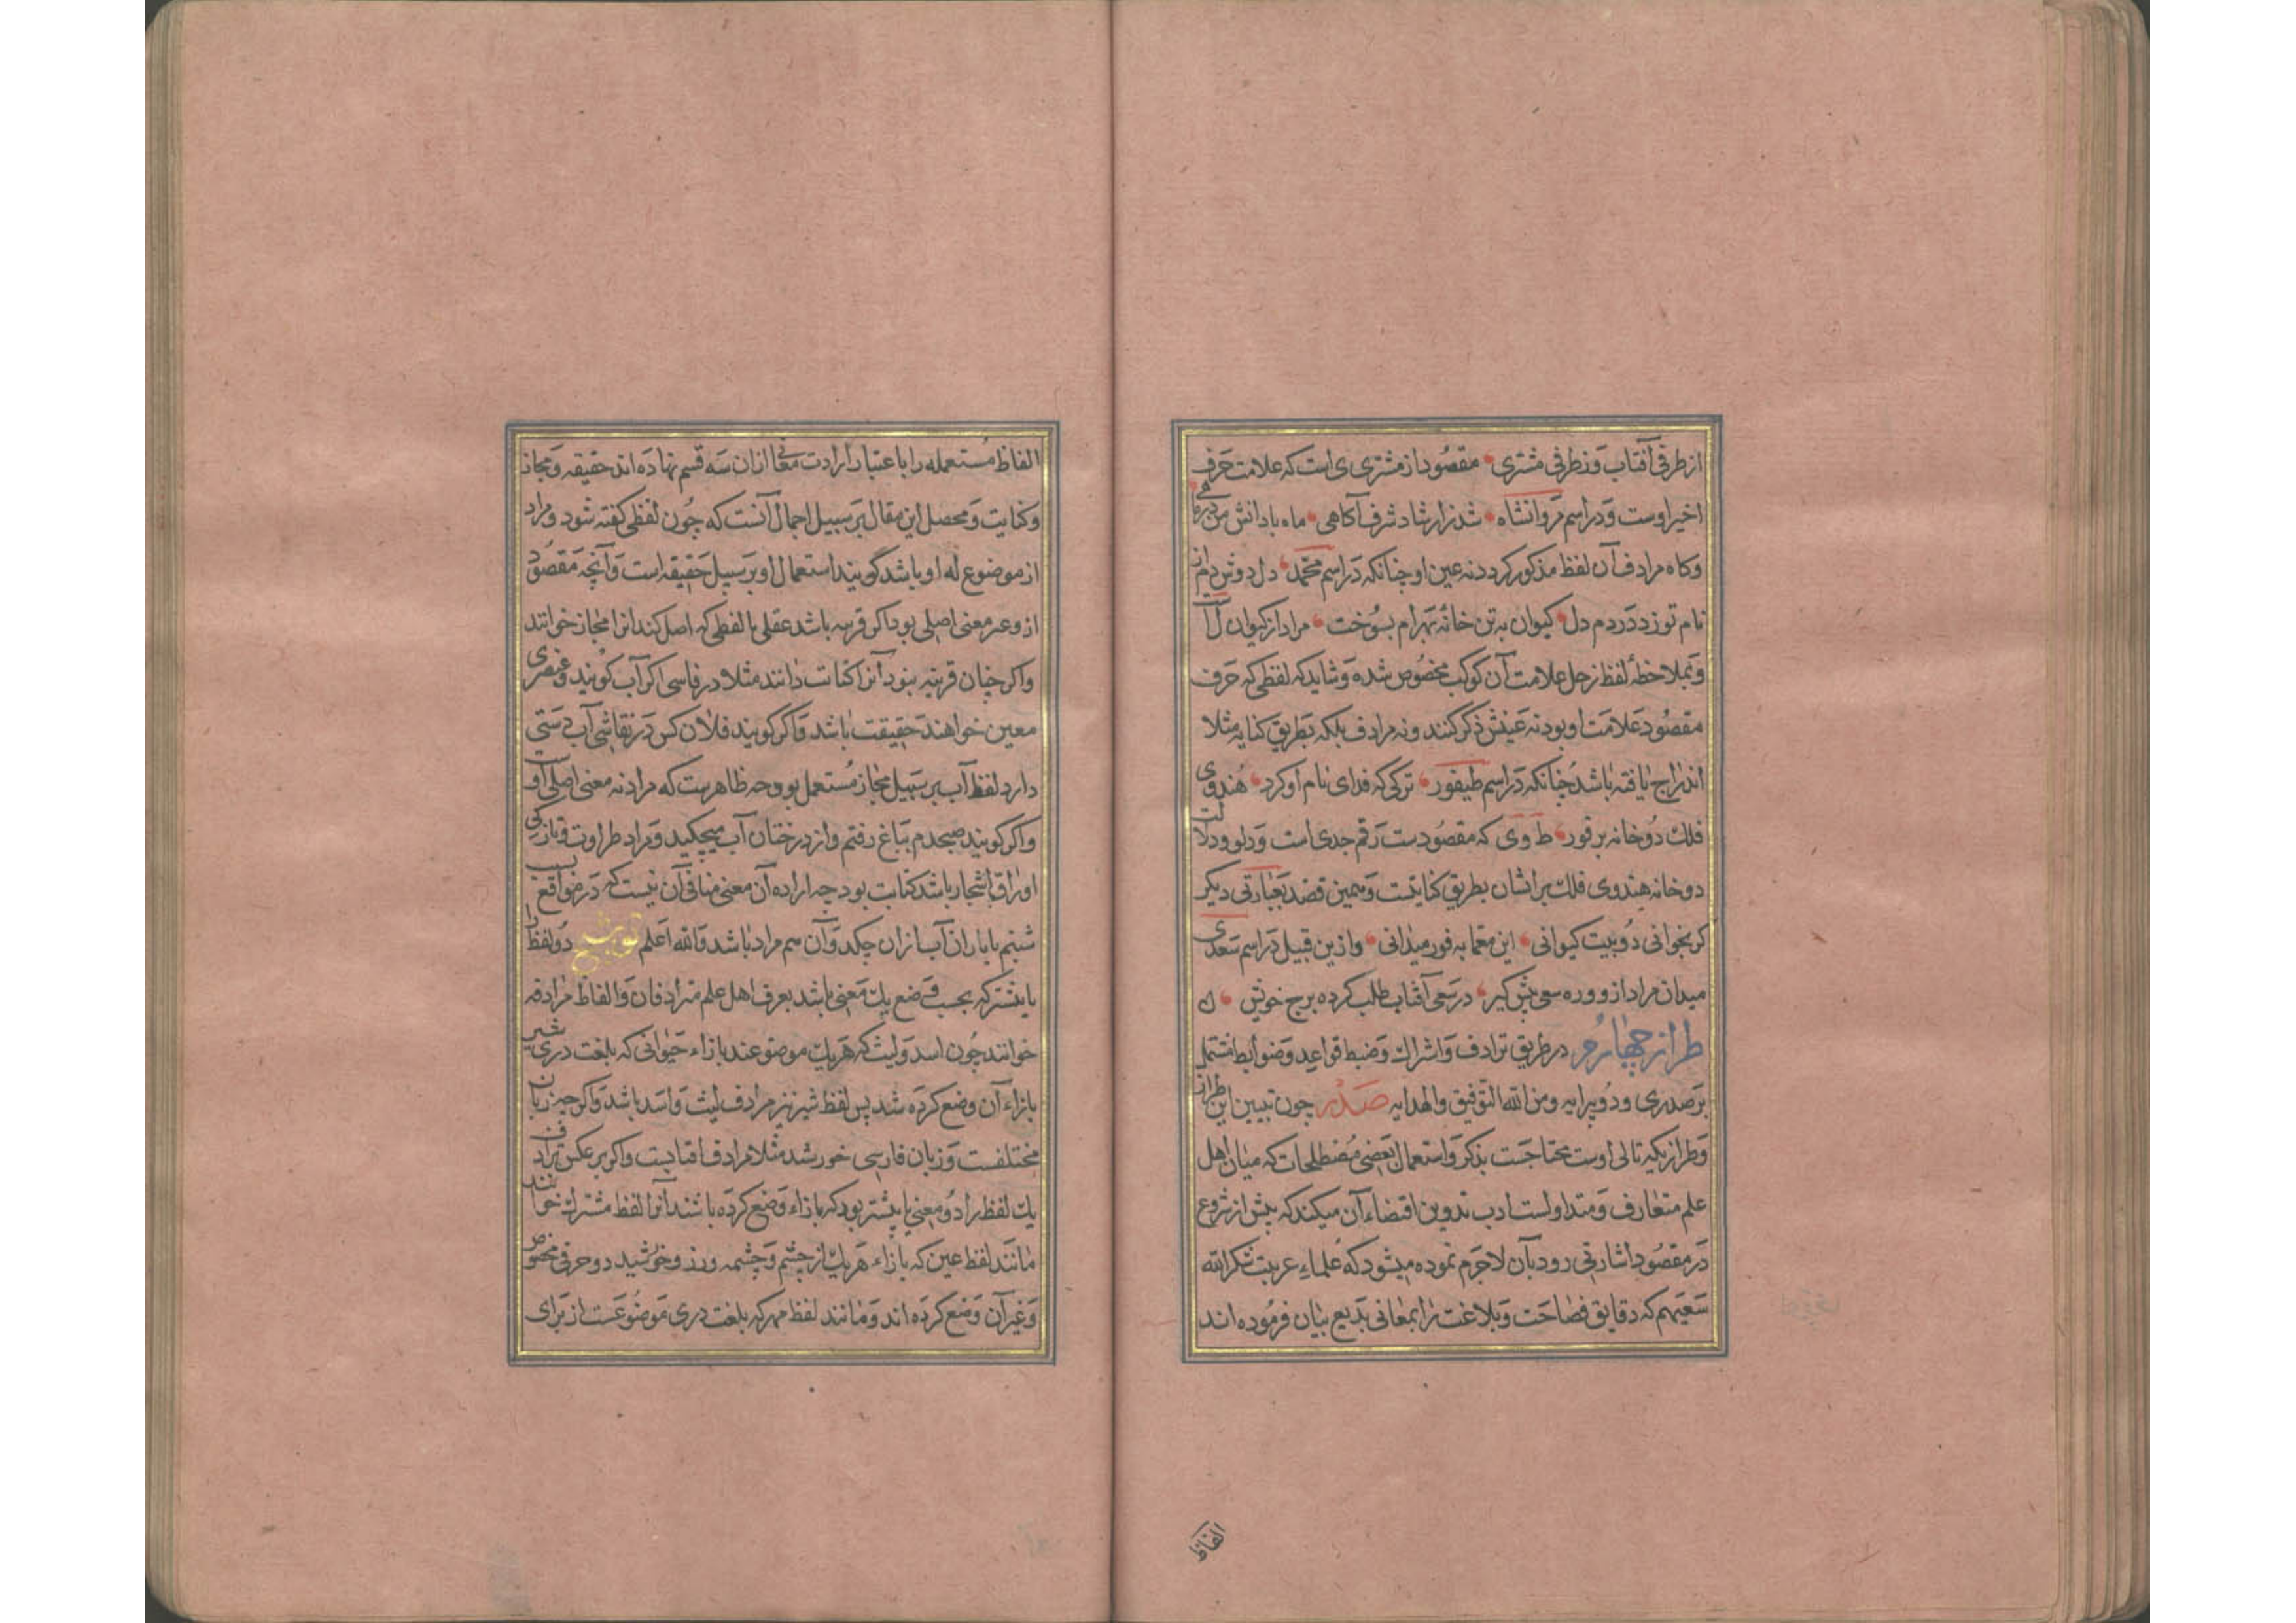 از طرفی آفتاب وز طرفی مشتری مقصود از مشتری ی است که علامت حرف
اخیر اوست و در اسم مروانشاه شد ز ارشاد شرف آکاهی ماه با دانش من
وکاه مرادف آن لفظ مذکور کردد نه عین او چنانکه در اسم محمد دل دوش دم از
نام تو زد در دم دل کیوان به تن خانه بهرام بسوخت مراد از کیوان ل است
وبملاحظه لفظ زحل علامت آن کوکب مخصوص شده و شاید که لفظی که حرف
مقصود علامت او بود نه عینش ذکر کنند و نه مرادف بلکه بطریق کنایه مثلا
اندراج یافته باشد چنانکه در اسم طیفور ترکی که فدای نام او کرد هندوی
فلک دو خانه بر فور ط و ی که مقصودست رقم جدی است و دلو و دلالت
دو خانه هندوی فلک برایشان بطریق کنایتست و همین قصد بعبارتی دیکر
کر بخوانی دو بیت کیوانی این معما به فور میدانی وازین قبیل در اسم سعدی
میدان مراد از و و ره سعی پیش کیر در سعی آفتاب طلب کرده برج خویش
طراز چهارم در طریق ترادف واشراک وضبط قواعد وضوابط مشتمل
بر صدری و دو پیرایه ومن الله التوفیق والهدایه صدر چون تبیین این طراز
وطراز یکه تالی اوست محتاجست بذکر واستعمال بعضی مصطلحات که میان اهل
علم متعارف ومتداولست ادب تدوین اقتضاء آن میکند که پیش از شروع
در مقصود اشارتی رود بآن لاجرم نموده میشود که علماء عربیت شکر الله
سعیهم که دقایق فصاحت وبلاغت را بمعانی بدیع بیان فرموده اند
الفاظ
الفاظ مستعمله را باعتبار ارادت معانی ازان سه قسم نهاده اند حقیقه ومجاز
وکنایت ومحصل این مقال بر سبیل اجمال آنست که چون لفظی کفته شود ومراد
از موضوع له او باشد گویند استعمال او بر سبیل حقیقه است وآنچه مقصود
ازو غیر معنی اصلی بود اکر قرینه باشد عقلی یا لفظی که اصل کند انرا مجاز خوانند
واکر چنان قرینه نبود آنرا کنایت دانند مثلا در فارسی اکر آب کویند وعنصری
معین خواهند حقیقت باشد واکر کویند فلان کس در نقاشی آب دستی
دارد لفظ آب بر سبیل مجاز مستعمل بود چه ظاهرست که مراد نه معنی اصلی اوست
واکر کویند صبحدم بباغ رفتم واز درختان آب میچکید ومراد طراوت وتازکی
اوراق اشجار باشد کنایت بود چه اراده آن معنی منافی آن نیست که در مواقع بسبب
شبنم یا باران آب ازان چکد وآن هم مراد باشد والله اعلم توشیح دو لفظ را
یا بیشتر که بحسب وضع یک معنی باشد بعرف اهل علم مترادفان والفاظ مرادفه
خوانند چون اسد ولیث که هر یک موضوعند بازاء حیوانی که بلغت دری شیر
بازاء آن وضع کرده شد پس لفظ شیر نیز مرادف لیث واسد باشد واکر چه زبان
مختلفست وزبان فارسی خورشد مثلا مرادف افتابست واکر بر عکس ترادف
یک لفظ را دو معنی یا بیشتر بود که بازاء وضع کرده باشند آنرا لفظ مشترک خوانند
مانند لفظ عین که بازاء هر یک از چشم وچشمه وزر وخورشید دو حرفی مخصوص
وغیر آن وضع کرده اند ومانند لفظ مهر که بلغت دری موضوعست از برای